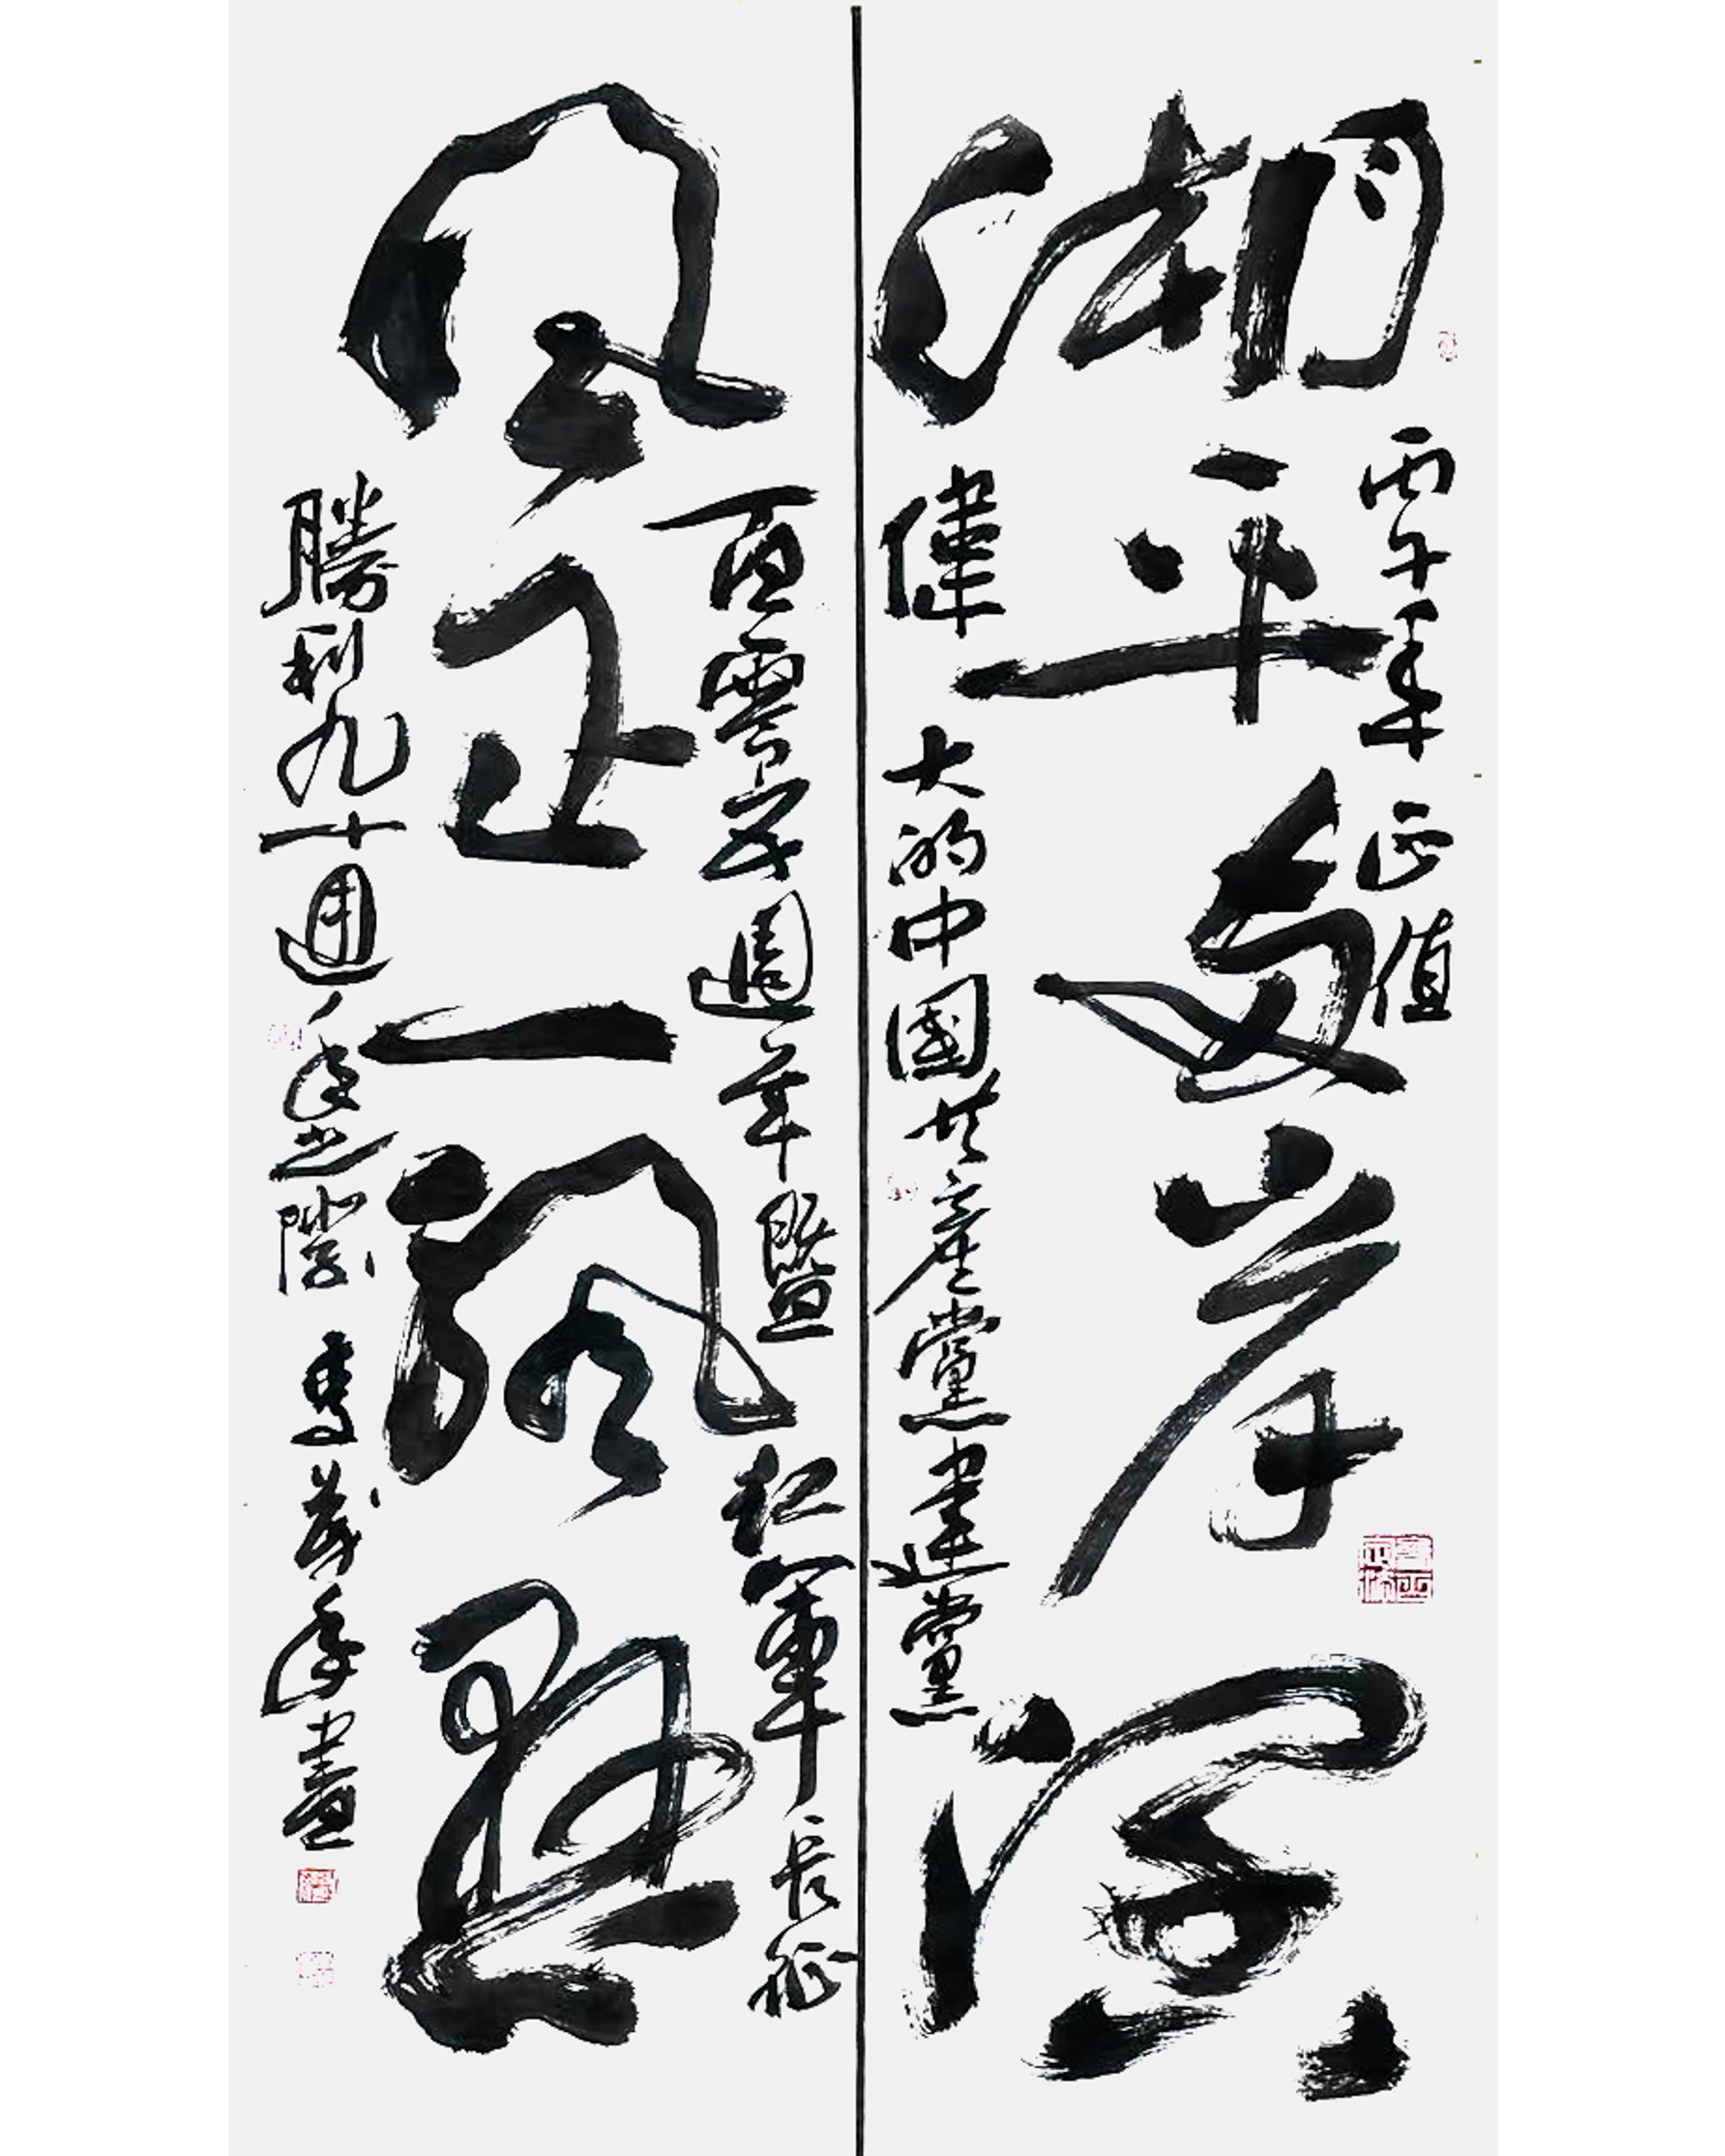 潮平兩岸闊
丙午年正值
偉大的中國共產黨建黨
風正一帆懸
百零五週年暨紅軍長征
勝利九十週年之際